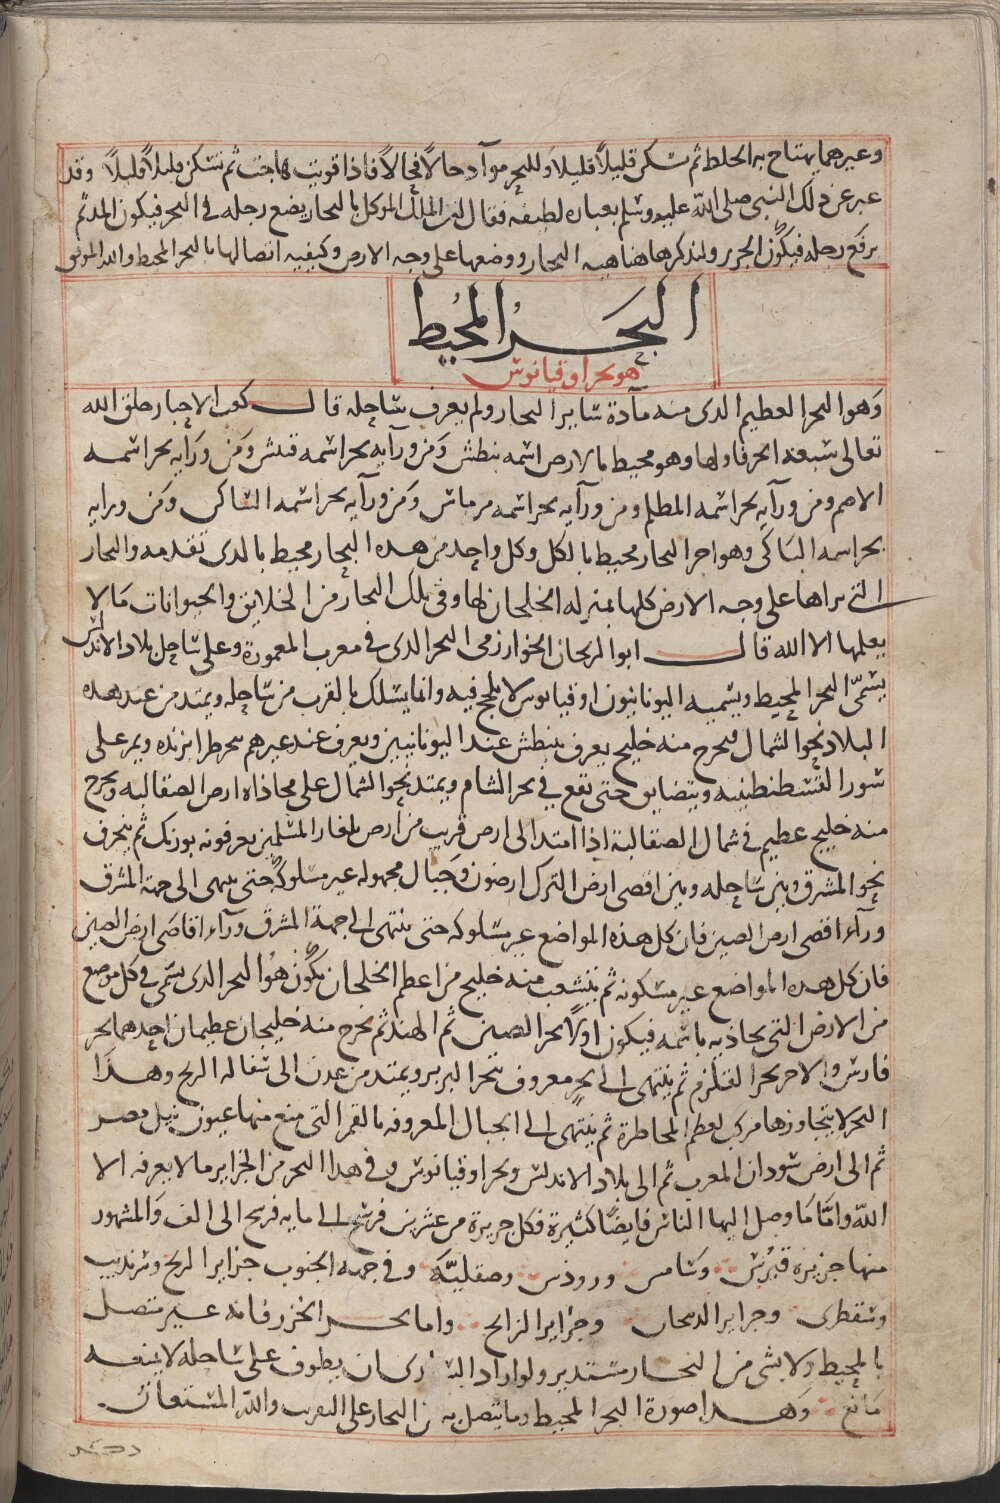 وغيرهما يهتاج به الخلط ثم يسكن قليلاً قليلا وللبحر موآد حالاً فحالاً فاذا قويت هاجت ثم تسكن قليلاً قليلاً وقد
عبر عن ذلك النبى صلى الله عليه وسلم بعباره لطيفه فقال ان الملك الموكل بالبحار يضع رجله فى البحر فيكون المد ثم
يرفع رجله فيكون الجزر ولنذكر هاهنا هيه البحار ووضعها على وجه الارض وكيفيه اتصالها بالبحر المحيط والله الموفق
البحر المحيط
هو بحر اوقيانوس
وهوا البحر العظيم الدى منه مآدة سايرا البحار ولم يعرف ساحله قال كعب الاحبار خلق الله
تعالى سبعة ابحر فاولها وهو محيط بالارض اسمه بنطس ومن ورآيه بحر اسمه قينس ومن ورآيه بحر اسمه
الاصم ومن ورآيه بحر اسمه المظلم ومن ورآيه بحر اسمه مرماس ومن ورآيه بحر اسمه الساكن ومن ورايه
بحر اسمه الباكى وهو اخر البحار محيط بالكل وكل واحد من هده البحار محيط بالدى تقدمه والبحار
التى نراها على وجه الارض كلها بمنزله الخلجان لها وفى تلك البحار من الخلايق والحيوانات مالا
يعلمها الا الله قال ابوا الريحان الخوارزمى البحر الدى فى مغرب المعمورة وعلى ساحل بلاد الاندلس
يسمى البحر المحيط ويسميه اليونانيون اوقيانوس لا يلجج فيه وانما يسلك بالقرب من ساحله ويمتد من عند هده
البلاد نحوا الشمال فيخرج منه خليج يعرف ببنطس عند اليونانيين ويعرف عند غيرهم ببحر طرابزنده ويمر على
سور القسطنطينيه ويتضايق حتى يقع فى بحر الشام ويمتد نحو الشمال على محاذاه ارض الصقالبه ويخرج
منه خليج عظيم فى شمال الصقالبة اذا امتد الى ارض قريب من ارض بلغار المسلمين يعرفونه بورنك ثم ينحرف
نحو المشرق وبين ساحله وبين اقصى ارض الترك ارضون وجبال مجهوله غير مسلوكة حتى ينتهى الى جهة المشرق
ورآء اقصى ارض الصين فان كل هذه المواضع غير مسلوكه حتى ينتهى الى جهة المشرق ورآء اقاصى ارض الصين
فان كل هده المواضع غير مسكونه ثم يتشعب منه خليج من اعظم الخلجان يكون هوا البحر الدى يسمى فى كل موضع
من الارض التى يحاذيه باسمه فيكون اولاً بحر الصين ثم الهند ثم يخرج منه خليجان عظيمان احدهما بحر
فارس والاخر بحر القلزم ثم ينتهى الى بحرٍ معروف ببحر البربر ويمتد من عدن الى سفاله الزنج وهذا
البحر لا يتجاوزها مركب لعظم المخاطرة ثم ينتهى الى الجبال المعروفه بالقمر التى ينبع منها عيون نيل مصر
ثم الى ارض سودان المغرب ثم الى بلاد الاندلس وبحر اوقيانوس وفى هدا البحر من الجزاير مالا يعرفه الا
الله واما ما وصل اليها الناس فايضاً كثيرة فكل جزيرة من عشرين فرسخ الى مايه فرسخ الى الف والمشهور
منها جزيرة قبرس وشامس ورودس وصقليّه وفى جهه الجنوب جزاير الزنج وسرنديب
وسقطرى وجزاير الدبيجات وجزاير الزابج واما بحر الخزر فانه غير متصل
بالمحيط ولا بشى من البحار مستدير ولو اراد السا ركان يطوف على ساحله لا يمنعه
مانع وهدا صورة البحر المحيط وما يتصل به من البحار على التقريب والله المستعان.